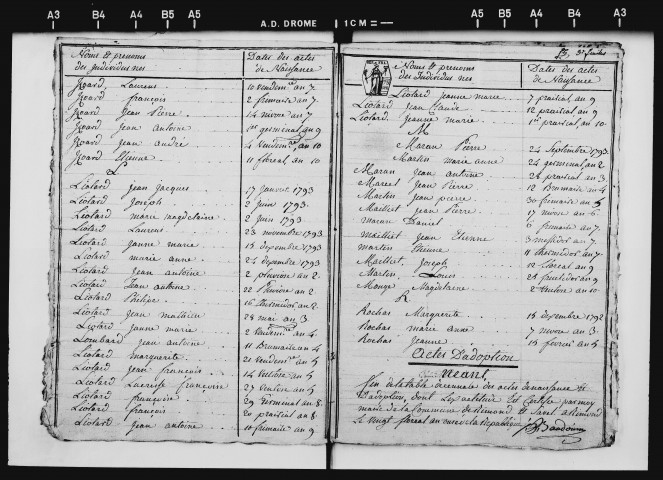 A3 B5 A4 A5 A.D. DROME 1 CM A5 B5 A4 B4 A3
Noms et prenoms
des Individus nés
Dates des actes
de Naissance
Joard Laurent 10 vendem.re an 7
Joard françois 2 frimaire an 7
Joard Jean Pierre 14 nivose an 7
Joard Jean antoine germinal an 9
Joard Jean andré 4 vendem.re an 10
Joard Etienne 11 floreal an 10
L
Liotard Jean Jacques 17 Janvier 1793
Liotard Joseph 2 Juin 1793
Liotard marie magdelaine 2 Juin 1793
Liotard Laurent 23 novembre 1793
Liotard Janne marie 15 decembre 1793
Liotard marie anne 24 decembre 1793
Liotard Jean antoine 2 pluviose an 2
Liotard Jean antoine 22 Pluviose an 2
Liotard 16 thermidor an 2
Liotard Jean mathieu 28 mai an 3
Liotard Janne marie 2 vendem. an 4
Lombard Jean antoine 11 Brumaire an 4
Liotard marguerite 21 vendem.re an 5
Liotard Jean françois 14 ventose an 5
Liotard Lucresse françoise 27 ventose an 5
Liotard françoise 29 germinal an 8
Liotard françois 20 prairial an 8
Liotard Jean antoine 11 frimaire an 9
Noms et prenoms
des Individus nés
Dates des actes
de Naissance
Liotard Jeanne marie 7 prairial an 9
Liotard Jean Claude 12 prairial an 9
Liotard Jeanne marie 1er prairial an 10
M
Maran Pierre 24 Septembre 1793
Martin marie anne 24 germinal an 2
Maran Jean antoine 28 prairial an 3
Marcel Jean Pierre 12 Brumaire an 4
Martin Jean pierre 30 frimaire an 5
Jean Pierre 17 nivose an 6
Daniel 6 frimaire an 7
Jean Etienne 3 messidor an 7
martin Etienne 11 thermidor an 7
Joseph 12 floreal an 9
Martin Louis 21 fructidor an 9
Monge Magdelaine 2 ventose an 10
R
Rochas Marguerite 15 decembre 1792
Rochas marie anne 7 nivose an 3
Rochas Jeanne 15 fevrier an 5
Actes D'adoption
Neant
fin de la table decennale des actes de naissance et
d'adoption, dont L'exactitude est Certifié par moy
maire de la Commune de Remond et Saint
Le vingt floreal an onze de la Republique
Baudouin